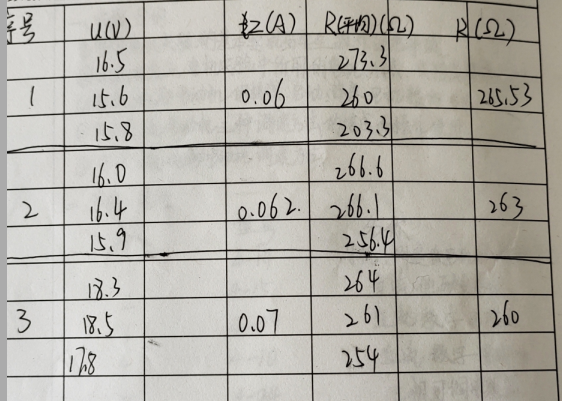 序号 U(V) I(A) R(平均)(Ω) R(Ω)
16.5 273.3
1 15.6 0.06 260 265.53
15.8 203.3
16.0 266.6
2 16.4 0.062. 266.1 263
15.9 256.4
18.3 264
3 18.5 0.07 261 260
17.8 254